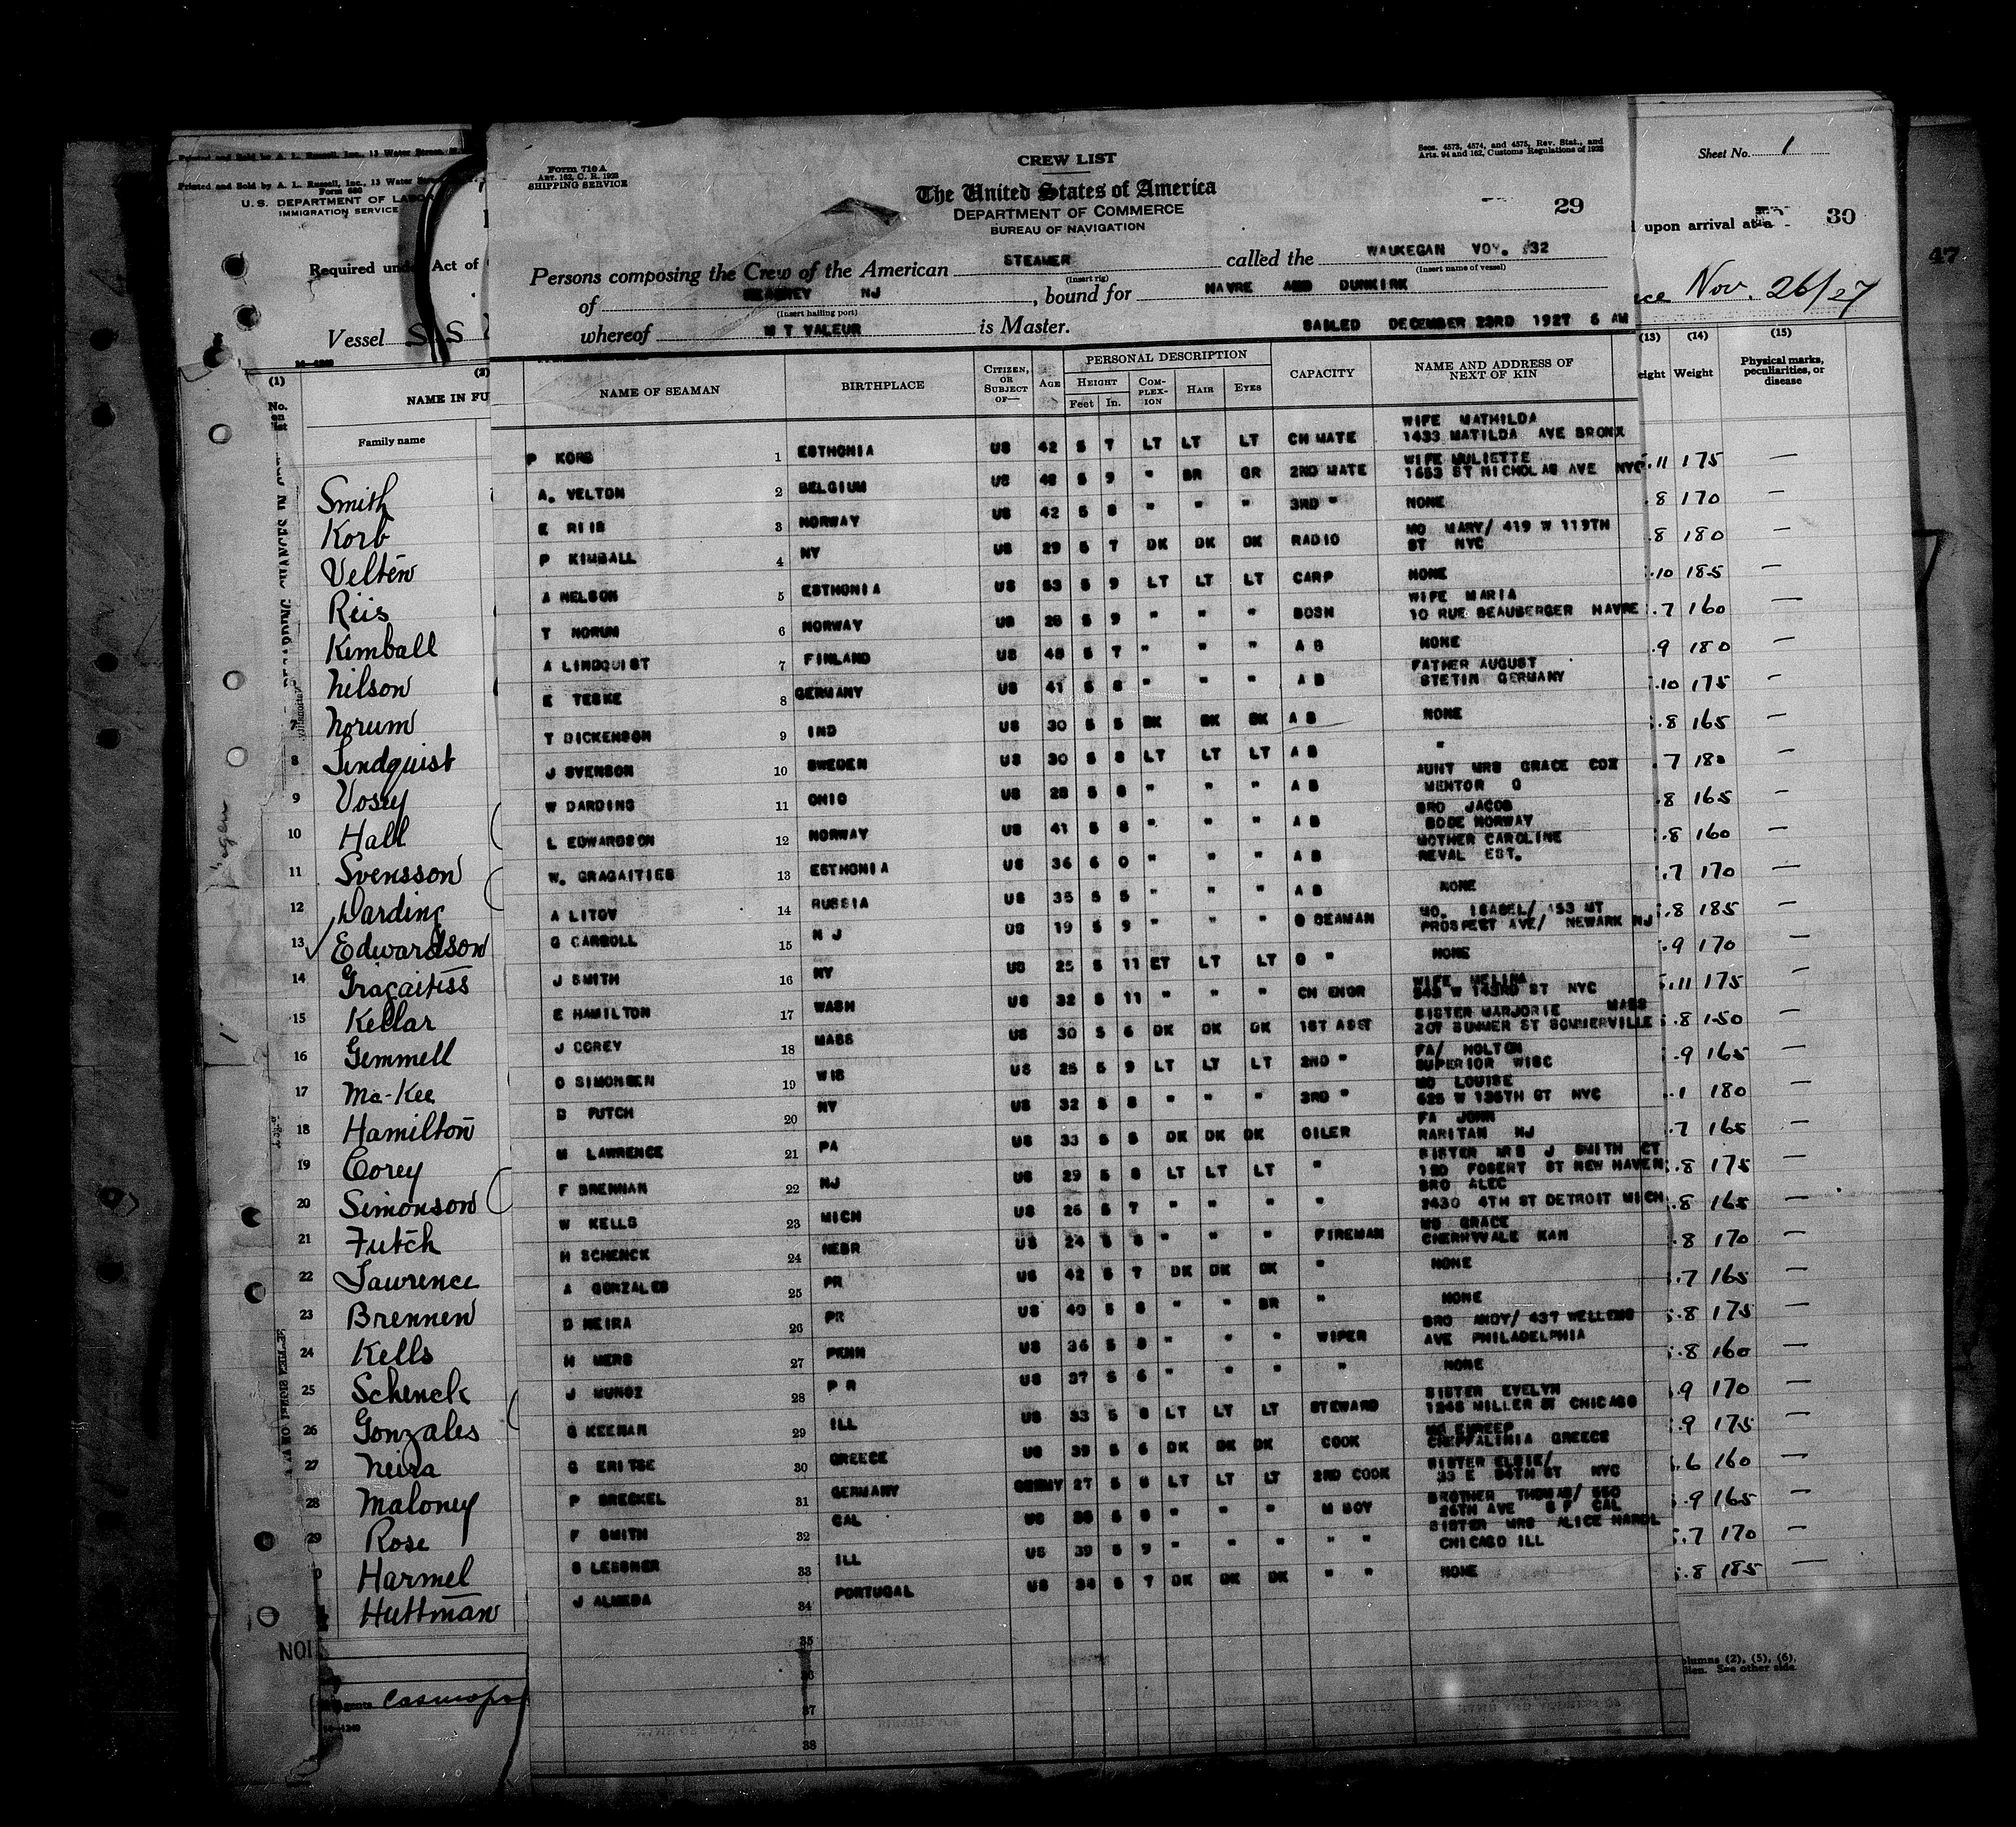 Printed and Sold by A. L. Russell, Inc., 13 Water Street,
Printed and Sold by A. L. Russell, Inc., 13 Water
Form 680
U. S. DEPARTMENT OF LABOR
IMMIGRATION SERVICE
Required under Act of
Vessel S.S
(1)
No. on list
NAME IN FU
Family name
Smith
Korb
Velten
Riis
Kimball
Nilson
Norum
8 Lindquist
9 Vosey
10 Hall
11 Svensson
12 Darding
13 Edwardson
14 Gragaitiss
15 Kellar
16 Gemmell
17 Ma-Kee
18 Hamilton
19 Corey
20 Simonson
21 Futch
22 Lawrence
23 Brennen
24 Kells
25 Schenck
26 Gonzales
27 Neira
28 Maloney
29 Rose
Harmel
Huttman
Form 710 A
ART. 162, C. R. 1923
SHIPPING SERVICE
CREW LIST
Secs. 4573, 4574, and 4575, Rev. Stat., and
Arts. 94 and 162, Customs Regulations of 1923
The United States of America
DEPARTMENT OF COMMERCE
BUREAU OF NAVIGATION
29
Persons composing the Crew of the American STEAMER called the WAUKEGAN VOY. 32
(Insert rig) (Insert name of vessel)
of NJ, bound for HAVRE AND DUNKIRK
(Insert hailing port)
whereof M T VALEUR is Master. SAILED DECEMBER 23RD 1927 6 AM
NAME OF SEAMAN BIRTHPLACE CITIZEN, OR SUBJECT OF— AGE PERSONAL DESCRIPTION CAPACITY NAME AND ADDRESS OF NEXT OF KIN
HEIGHT COMPLEXION HAIR EYES
Feet In.
WIFE MATHILDA
P KORB 1 ESTHONIA US 42 5 7 LT LT LT CH MATE 1433 MATILDA AVE BRONX
A. VELTON 2 BELGIUM US 48 5 9 " BR GR 2ND MATE WIFE 1653 ST NICHOLAS AVE NYC
E RIIS 3 NORWAY US 42 5 8 " " " 3RD " NONE
P KIMBALL 4 NY US 29 5 7 DK DK DK RADIO MO MARY/ 419 W 119TH ST NYC
A NELSON 5 ESTHONIA US 53 5 9 LT LT LT CARP NONE
T NORUM 6 NORWAY US 28 5 9 " " " BOSN WIFE MARIA 10 RUE BEAUBERGER HAVRE
A LINDQUIST 7 FINLAND US 48 5 7 " " " A B NONE
E TESKE 8 GERMANY US 41 5 8 " " " A B FATHER AUGUST STETIN GERMANY
T DICKENSON 9 IND US 30 5 5 DK DK DK A B NONE
J SVENSON 10 SWEDEN US 30 5 8 LT LT LT A B "
W DARDING 11 OHIO US 28 5 8 " " " A B AUNT MRS GRACE COX MENTOR O
L EDWARDSON 12 NORWAY US 41 5 8 " " " A B BRO JACOB BODE NORWAY
W. GRAGAITIES 13 ESTHONIA US 36 6 0 " " " A B MOTHER CAROLINE REVAL EST.
A LITOV 14 RUSSIA US 35 5 5 " " " A B NONE
G CARROLL 15 N J US 19 5 9 " " " O SEAMAN MO. ISABEL/ 153 MT PROSPECT AVE/ NEWARK NJ
J SMITH 16 NY US 25 5 11 LT LT LT O " NONE
E HAMILTON 17 WASH US 32 5 11 " " " CH ENGR WIFE 543 W 143RD ST NYC
J COREY 18 MASS US 30 5 6 DK DK DK 1ST ASST SISTER MARJORIE MASS 207 SUMMER ST SOMMERVILLE
O SIMONSEN 19 WIS US 25 5 9 LT LT LT 2ND " FA/ HOLTON SUPERIOR WISC
D FUTCH 20 NY US 32 5 8 " " " 3RD " MO LOUISE 625 W 136TH ST NYC
M LAWRENCE 21 PA US 33 5 8 DK DK DK OILER FA JOHN RARITAN NJ
F BRENNAN 22 NJ US 29 5 8 LT LT LT " SISTER MRS J SMITH CT ST NEW HAVEN
W KELLS 23 MICH US 26 5 7 " " " " BRO ALEC 2430 4TH ST DETROIT MICH
H SCHENCK 24 NEBR US 24 5 8 " " " FIREMAN MO GRACE CHERRYVALE KAN
A GONZALES 25 PR US 42 5 7 DK DK DK " NONE
D NEIRA 26 PR US 40 5 8 " " BR " NONE
H MERS 27 PENN US 36 5 8 " " " WIPER BRO ANDY/ 437 WELLENS AVE PHILADELPHIA
J MUNOZ 28 P R US 37 5 6 " " " " NONE
G KEENAN 29 ILL US 33 5 8 LT LT LT STEWARD SISTER EVELYN 1248 MILLER ST CHICAGO
G ERITSE 30 GREECE US 39 5 6 DK DK DK COOK GREECE
P BRECKEL 31 GERMANY 27 5 8 LT LT LT 2ND COOK SISTER ELSIE/ 33 E 84TH ST NYC
F SMITH 32 CAL US 5 8 " " " M BOY BROTHER THOMAS/ 550 26TH AVE S F CAL
S LESSNER 33 ILL US 39 5 9 " " " " " SISTER MRS ALICE CHICAGO ILL
J ALMEDA 34 PORTUGAL US 34 5 7 DK DK DK " " NONE
35
36
37
38
Sheet No. 1
upon arrival at a
30
Nov. 26/27
47
(13) (14) (15)
eight Weight Physical marks, peculiarities, or disease
.11 175 —
.8 170 —
.8 180 —
.10 185 —
.7 160 —
.9 180 —
.10 175 —
.8 165 —
7 180 —
.8 165 —
.8 160 —
.7 170 —
.8 185 —
.9 170 —
.11 175 —
.8 150 —
.9 165 —
.1 180 —
.7 165 —
.8 175 —
.8 165 —
.8 170 —
.7 165 —
.8 175 —
.8 160 —
.9 170 —
.9 175 —
.6 160 —
.9 165 —
.7 170 —
.8 185 —
olumns (2), (5), (6),
lien. See other side